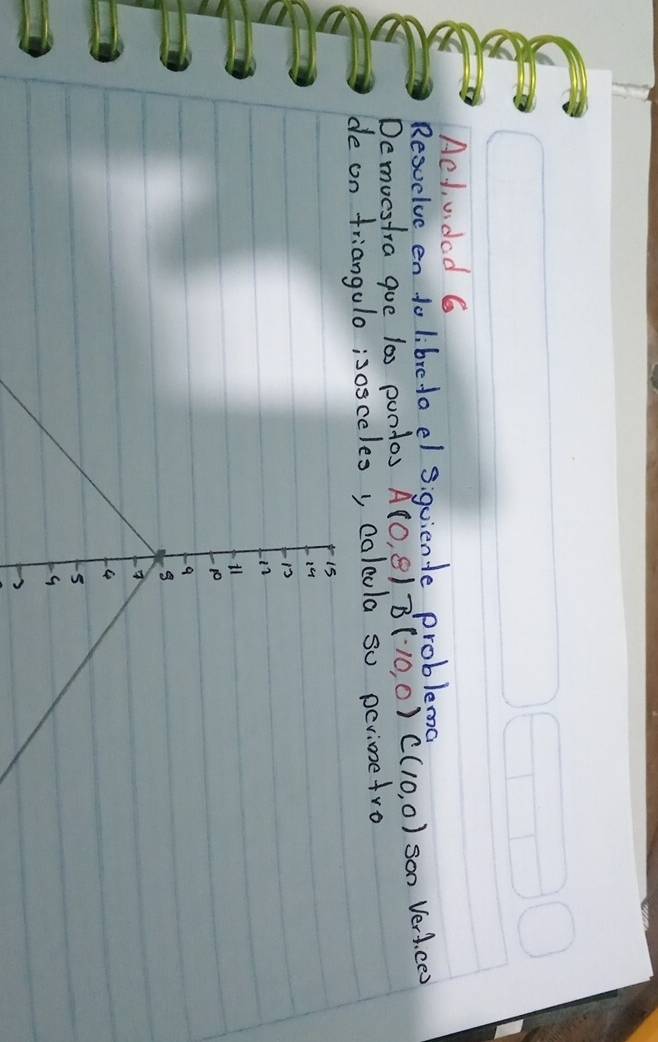 Actividad 6
Resuelve en tu libreta el siguiente problema
Demuestra que los puntos A(0,8) B(-10,0) C(10,0) son vertices
de un triangulo isosceles y calcula su perimetro
15
14
13
12
11
10
9
8
7
6
5
4
3